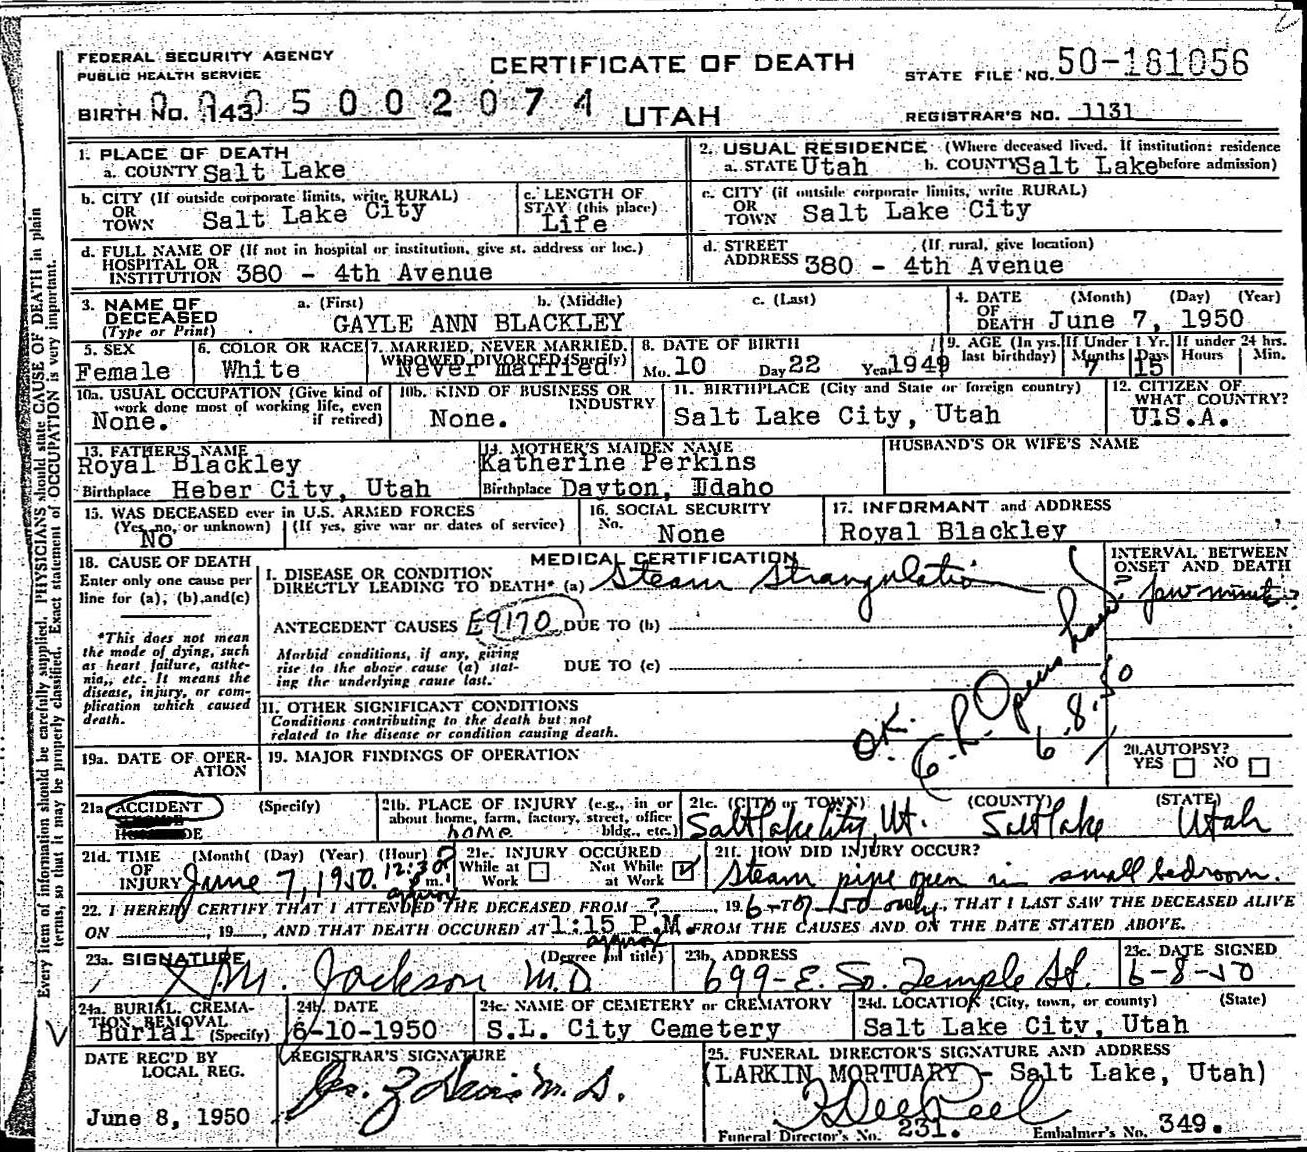 FEDERAL SECURITY AGENCY
PUBLIC HEALTH SERVICE
CERTIFICATE OF DEATH
STATE FILE NO. 50-181056
BIRTH NO. 143 0005002074
UTAH
REGISTRAR'S NO. 1131
1. PLACE OF DEATH
a. COUNTY Salt Lake
2. USUAL RESIDENCE (Where deceased lived. If institution: residence before admission)
a. STATE Utah b. COUNTY Salt Lake
b. CITY (If outside corporate limits, write RURAL) OR TOWN Salt Lake City
c. LENGTH OF STAY (this place) Life
c. CITY (if outside corporate limits, write RURAL) OR TOWN Salt Lake City
d. FULL NAME OF (If not in hospital or institution, give st. address or loc.) HOSPITAL OR INSTITUTION 380 - 4th Avenue
d. STREET ADDRESS (If rural, give location) 380 - 4th Avenue
3. NAME OF DECEASED (Type or Print) a. (First) b. (Middle) c. (Last)
GAYLE ANN BLACKLEY
4. DATE OF DEATH (Month) (Day) (Year) June 7, 1950
5. SEX Female
6. COLOR OR RACE White
7. MARRIED, NEVER MARRIED, WIDOWED, DIVORCED (Specify) Never married
8. DATE OF BIRTH Mo. 10 Day 22 Year 1949
9. AGE (In yrs. last birthday) If Under 1 Yr. Months 7 Days 15 If under 24 hrs. Hours Min.
10a. USUAL OCCUPATION (Give kind of work done most of working life, even if retired) None.
10b. KIND OF BUSINESS OR INDUSTRY None.
11. BIRTHPLACE (City and State or foreign country) Salt Lake City, Utah
12. CITIZEN OF WHAT COUNTRY? U.S.A.
13. FATHER'S NAME
Royal Blackley
Birthplace Heber City, Utah
14. MOTHER'S MAIDEN NAME
Katherine Perkins
Birthplace Dayton, Idaho
HUSBAND'S OR WIFE'S NAME
15. WAS DECEASED ever in U.S. ARMED FORCES
(Yes, no, or unknown) (If yes, give war or dates of service)
No
16. SOCIAL SECURITY No. None
17. INFORMANT and ADDRESS
Royal Blackley
18. CAUSE OF DEATH
Enter only one cause per line for (a), (b), and (c)
*This does not mean the mode of dying, such as heart failure, asthenia, etc. It means the disease, injury, or complication which caused death.
MEDICAL CERTIFICATION
I. DISEASE OR CONDITION DIRECTLY LEADING TO DEATH* (a) Steam Strangulation
INTERVAL BETWEEN ONSET AND DEATH
? few minutes?
ANTECEDENT CAUSES E9170 DUE TO (b)
Morbid conditions, if any, giving rise to the above cause (a) stating the underlying cause last.
DUE TO (c)
II. OTHER SIGNIFICANT CONDITIONS
Conditions contributing to the death but not related to the disease or condition causing death.
O.K.
6.8.50
19a. DATE OF OPERATION
19. MAJOR FINDINGS OF OPERATION
20. AUTOPSY?
YES NO
21a. ACCIDENT (Specify)
21b. PLACE OF INJURY (e.g., in or about home, farm, factory, street, office bldg., etc.) home
21c. (CITY or TOWN) (COUNTY) (STATE)
Salt Lake City, Ut. Salt Lake Utah
21d. TIME OF INJURY (Month) (Day) (Year) (Hour) June 7, 1950 12:30? p m. approx
21e. INJURY OCCURED
While at Work Not While at Work
21f. HOW DID INJURY OCCUR?
Steam pipe open in small bedroom.
22. I HEREBY CERTIFY THAT I ATTENDED THE DECEASED FROM ?, 19 TO 6-7-50 only, THAT I LAST SAW THE DECEASED ALIVE
ON , 19 , AND THAT DEATH OCCURED AT 1:15 P.M. approx FROM THE CAUSES AND ON THE DATE STATED ABOVE.
23a. SIGNATURE (Degree or title)
M. Jackson M.D.
23b. ADDRESS
699-E. So. Temple St.
23c. DATE SIGNED
6-8-50
24a. BURIAL, CREMATION, REMOVAL (Specify) Burial
24b. DATE
6-10-1950
24c. NAME OF CEMETERY or CREMATORY
S.L. City Cemetery
24d. LOCATION (City, town, or county) (State)
Salt Lake City, Utah
DATE REC'D BY LOCAL REG.
June 8, 1950
REGISTRAR'S SIGNATURE
25. FUNERAL DIRECTOR'S SIGNATURE AND ADDRESS
(LARKIN MORTUARY - Salt Lake, Utah)
Funeral Director's No. 231. Embalmer's No. 349.
Every item of information should be carefully supplied. PHYSICIANS should state CAUSE OF DEATH in plain
terms, so that it may be properly classified. Exact statement of OCCUPATION is very important.